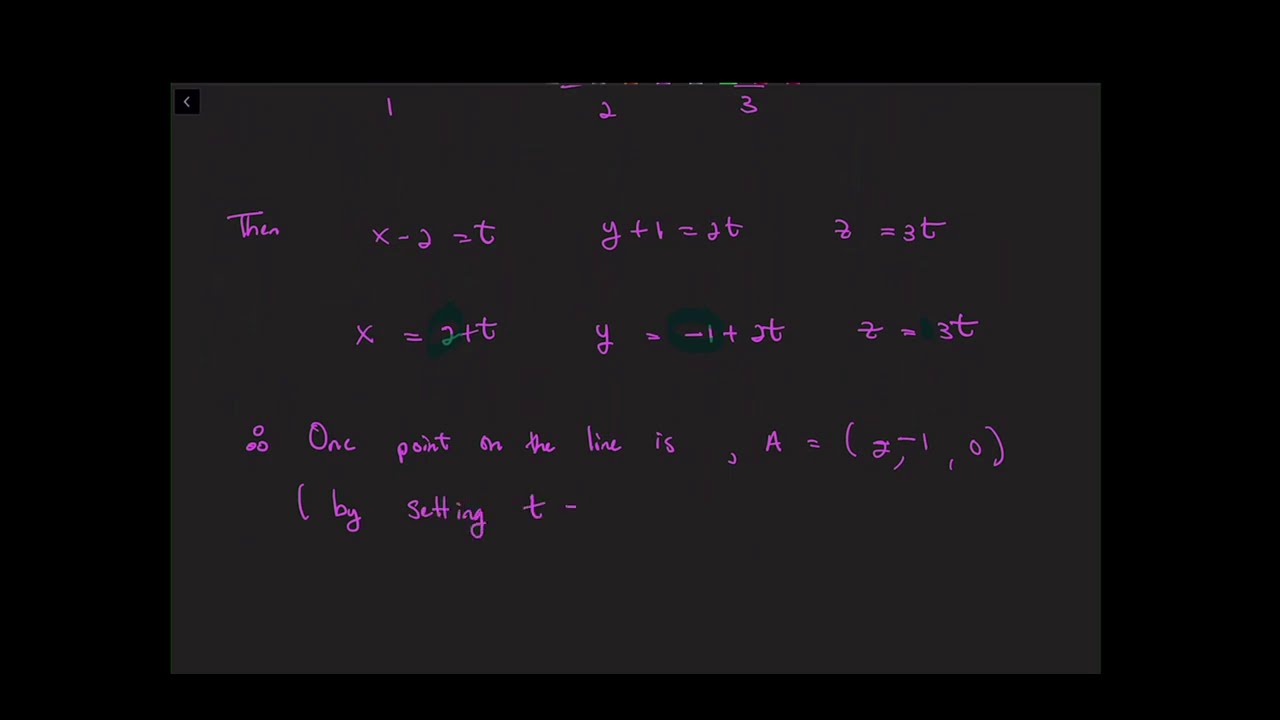 1 2 3
Then x - 2 = t y + 1 = 2t z = 3t
x = 2 + t y = -1 + 2t z = 3t
∴ One point on the line is , A = (2, -1, 0)
( by setting t -